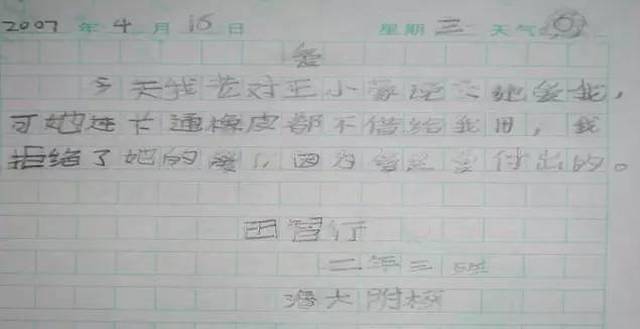 2007 年 4 月 16 日 星期 三 天气
爱
今天我老对王小蒙说 她爱我,
可她连卡通橡皮都不借给我用,我
拒绝了她的爱,因为爱是 付出的。
田 行
二年三班
海大附校